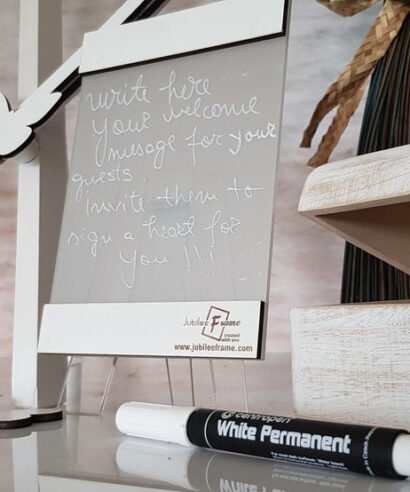 write here
your welcome
message for your
guests.
Invite them to
sign a heart for
you !!!
Jubilee Frame
created
with you
www.jubileeframe.com
centropen
White Permanent